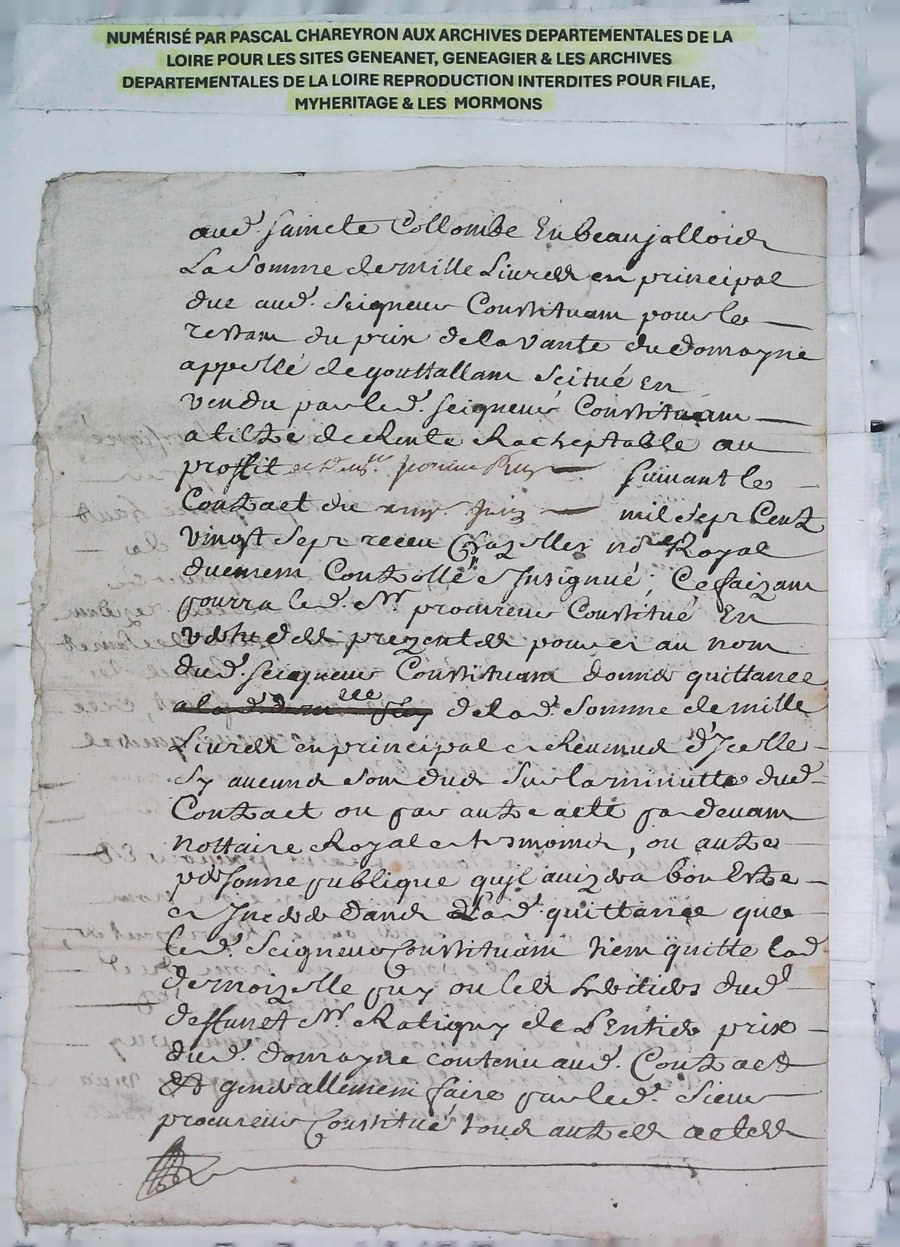 NUMÉRISÉ PAR PASCAL CHAREYRON AUX ARCHIVES DEPARTEMENTALES DE LA
LOIRE POUR LES SITES GENEANET, GENEAGIER & LES ARCHIVES
DEPARTEMENTALES DE LA LOIRE REPRODUCTION INTERDITES POUR FILAE,
MYHERITAGE & LES MORMONS
aud. Saincte Collombe En beaujollois
La Somme de mille Livres en principal
due aud. Seigneur Constituant pour le
restant du prix de la vante du domayne
appellé de gouttallant Scitué en
vendu par led. Seigneur Constituant
a tiltre de Rente Racheptable au
proffit suivant le
Contract du Juin mil Sept Cent
vingt Sept receu Chazelles nore Royal
duement Controllé & Insignué; Ce faizant
pourra led. Sr. procureur Constitué En
vertu des prezentes pour et au nom
dud. Seigneur Constituant donner quittance
a la d. dem.lle de lad. Somme de mille
Livres en principal et Revenus d'Icelle
Sy aucuns Sont dus Sur la minutte dud.
Contract ou par autre acte par devant
Nottaire Royal et tesmoins, ou autre
personne publique qu'jl avizera bon Estre
et Inserer dans Lad. quittance que
led. Seigneur Constituant tient quitte lad
demoizelle puy ou les heritiers dud.
deffunct Sr. Ratigny de L'Entier prix
dud. domayne contenu aud. Contract
Et generallement faire par led. Sieur
procureur Constitué tous autres actes